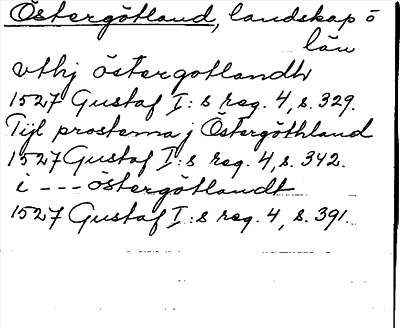 Östergötland, landskap o
län
vthj östergotlandh
1527 Gustaf I:s reg. 4, s. 329.
Tijl prosterna j Östergöthland
1527 Gustaf I:s reg. 4, s. 342.
i --- östergötlandt
1527 Gustaf I:s reg. 4, s. 391.